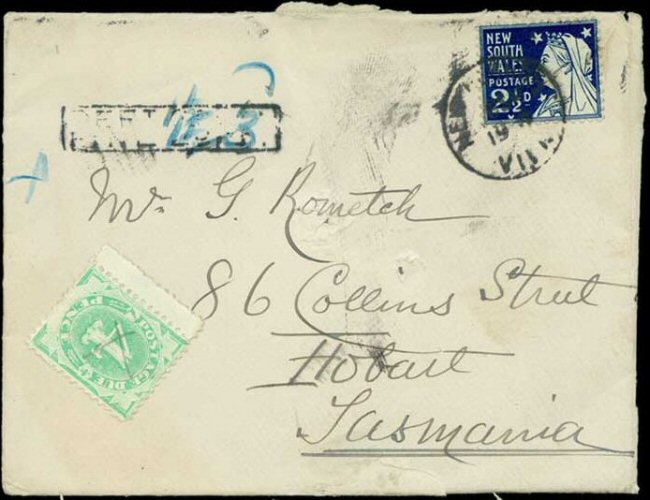 NEW
SOUTH
WALES
POSTAGE
2½D
Mr. G. Rometch
86 Collins Street
Hobart
Tasmania
POSTAGE DUE
4
PENCE